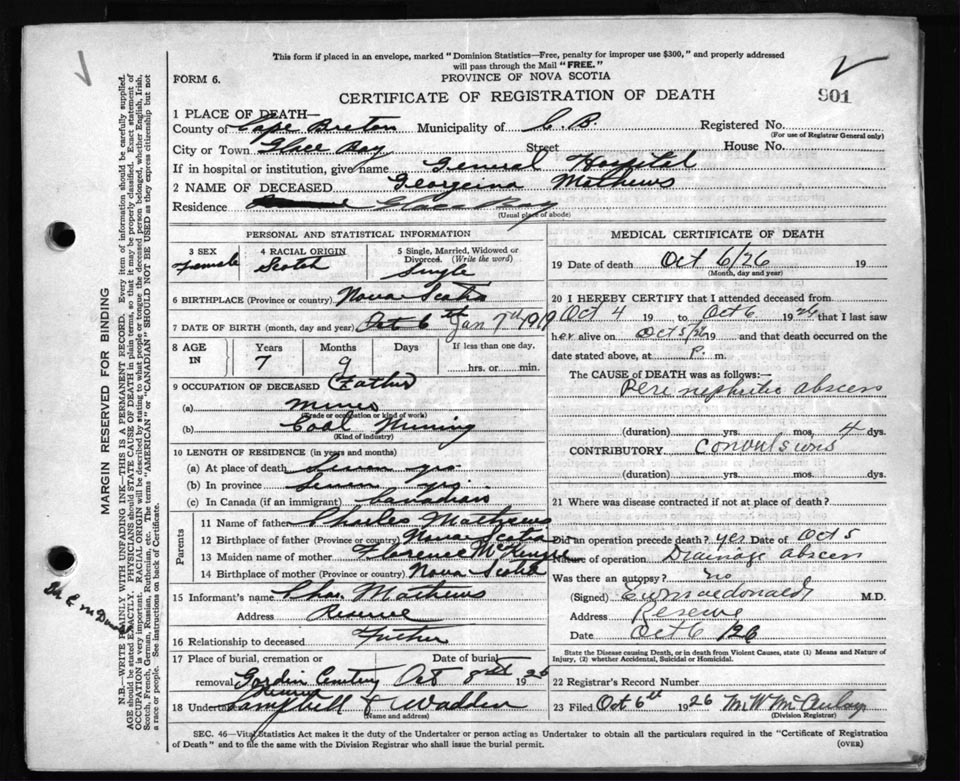 This form if placed in an envelope, marked "Dominion Statistics—Free, penalty for improper use $300," and properly addressed
will pass through the Mail "FREE."
FORM 6.
PROVINCE OF NOVA SCOTIA
901
CERTIFICATE OF REGISTRATION OF DEATH
1 PLACE OF DEATH—
County of Cape Breton Municipality of C. B. Registered No.
(For use of Registrar General only)
City or Town Glace Bay Street House No.
If in hospital or institution, give name General Hospital
2 NAME OF DECEASED Georgeina Mathews
Residence Glace Bay
(Usual place of abode)
PERSONAL AND STATISTICAL INFORMATION
3 SEX 4 RACIAL ORIGIN 5 Single, Married, Widowed or
Divorced. (Write the word)
Female Scotch Single
6 BIRTHPLACE (Province or country) Nova Scotia
7 DATE OF BIRTH (month, day and year) Oct 6th Jan 7th 1919
8 AGE IN Years Months Days If less than one day.
7 9 hrs. or min.
9 OCCUPATION OF DECEASED (Father
(a) Miner
(Trade or occupation or kind of work)
(b) Coal Mining
(Kind of industry)
10 LENGTH OF RESIDENCE (in years and months)
(a) At place of death Seven yrs.
(b) In province Seven yrs
(c) In Canada (if an immigrant) Canadian
Parents
11 Name of father Charles Mathews
12 Birthplace of father (Province or country) Nova Scotia
13 Maiden name of mother Florence McKenzie
14 Birthplace of mother (Province or country) Nova Scotia
15 Informant's name Chas. Mathews
Address Reserve
16 Relationship to deceased Father
17 Place of burial, cremation or Date of burial
removal Cemetery Oct 8th 1926
18 Undertaker Campbell & Wadden
(Name and address)
MEDICAL CERTIFICATE OF DEATH
19 Date of death Oct 6/26 19
(Month, day and year)
20 I HEREBY CERTIFY that I attended deceased from
Oct 4 19 to Oct 6 1926 that I last saw
her alive on Oct 5/26 19 and that death occurred on the
date stated above, at P. m.
The CAUSE of DEATH was as follows:—
Peri nephritic abscess
(duration) yrs. mos. 4 dys.
CONTRIBUTORY Convulsions
(duration) yrs. mos. dys.
21 Where was disease contracted if not at place of death?
Did an operation precede death? yes Date of Oct 5
Nature of operation Drainage abscess
Was there an autopsy? no
(Signed) M.D.
Address Reserve
Date Oct 6 /26
State the Disease causing Death, or in death from Violent Causes, state (1) Means and Nature
of Injury, (2) whether Accidental, Suicidal or Homicidal.
22 Registrar's Record Number
23 Filed Oct 6th 1926 M. W. McAulay
(Division Registrar)
SEC. 46—Vital Statistics Act makes it the duty of the Undertaker or person acting as Undertaker to obtain all the particulars required in the "Certificate of Registration
of Death" and to file the same with the Division Registrar who shall issue the burial permit.
(OVER)
MARGIN RESERVED FOR BINDING
N.B.—WRITE PLAINLY WITH UNFADING INK—THIS IS A PERMANENT RECORD. Every item of information should be carefully supplied.
AGE should be stated EXACTLY. PHYSICIANS should STATE CAUSE OF DEATH in plain terms, so that it may be properly classified. Exact statement of
OCCUPATION is very important. RACIAL ORIGIN will be described by stating to what people or tongue the deceased person belonged, whether English, Irish,
Scotch, French, German, Russian, Ruthenian, etc. The terms "AMERICAN" or "CANADIAN" SHOULD NOT BE USED as they express citizenship but not
a race or people. See instructions on back of Certificate.